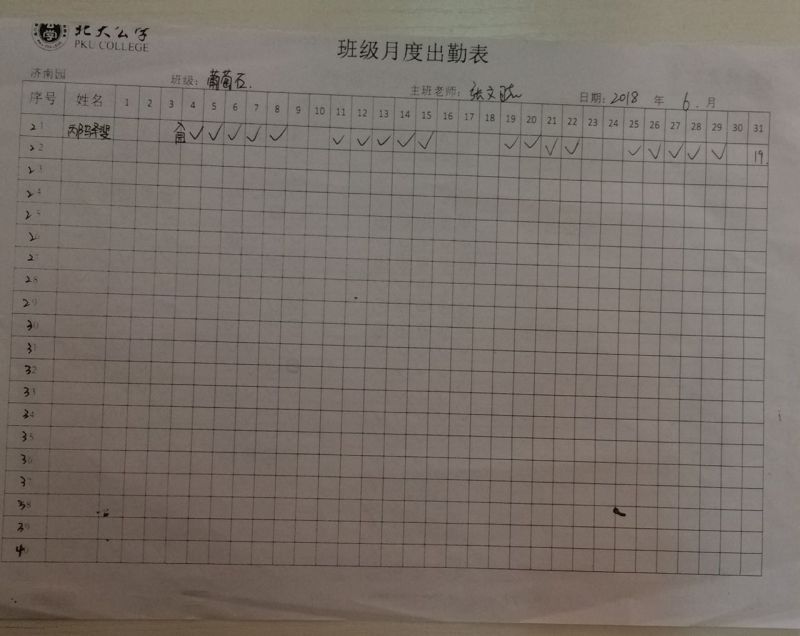 北大公学
PKU COLLEGE
班级月度出勤表
济南园 班级: 葡萄石. 主班老师: 张文 日期: 2018 年 6. 月
序号 姓名 1 2 3 4 5 6 7 8 9 10 11 12 13 14 15 16 17 18 19 20 21 22 23 24 25 26 27 28 29 30 31
21 入园 ✓ ✓ ✓ ✓ ✓ ✓ ✓ ✓ ✓ ✓ ✓ ✓ ✓ ✓ ✓ ✓ ✓ ✓ ✓ 19.
22
23
24
25
26
27
28
29
30
31
32
33
34
35
36
37
38
39
40